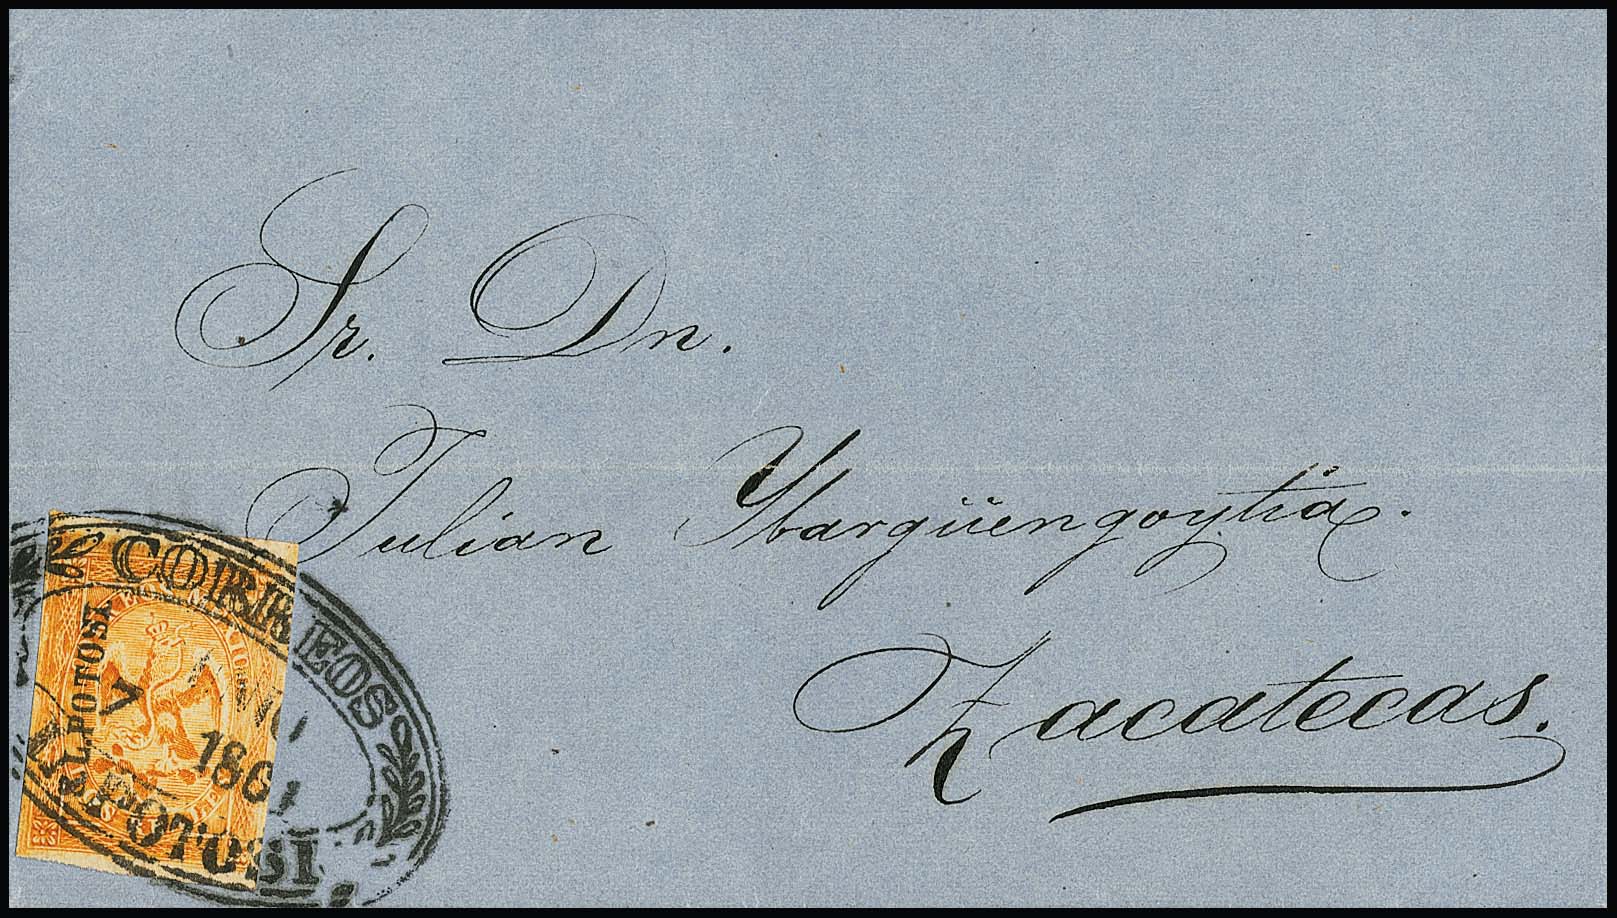 Sr. Dn.
Julian Ybargüengoytia.
Zacatecas.
CORREOS
POTOSI
S.L.POTOSI
7